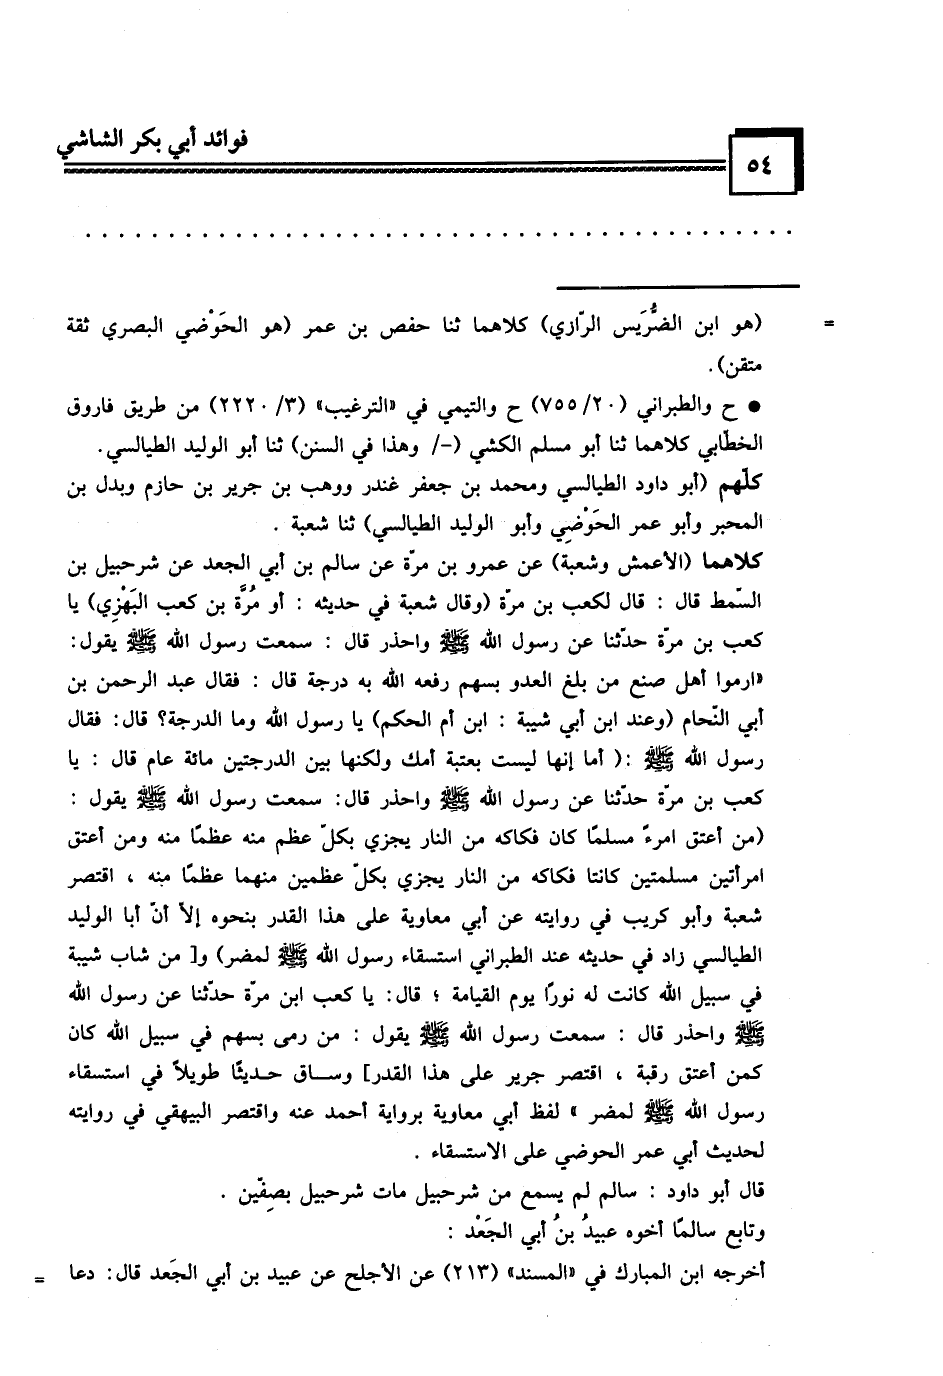 فوائد أبي بكر الشاشي
٥٤
. . . . . . . . . . . . . . . . . . . . . . . . . . . . . . . . . . . .
= (هو ابن الضُّرَيس الرّازي) كلاهما ثنا حفص بن عمر (هو الحَوْضي البصري ثقة
متقن).
● ح والطبراني (٧٥٥/٢٠) ح والتيمي في «الترغيب» (٢٢٢٠/٣) من طريق فاروق
الخطّابي كلاهما ثنا أبو مسلم الكشي (-/ وهذا في السنن) ثنا أبو الوليد الطيالسي.
كلّهم (أبو داود الطيالسي ومحمد بن جعفر غندر ووهب بن جرير بن حازم وبدل بن
المحبر وأبو عمر الحَوْضِي وأبو الوليد الطيالسي) ثنا شعبة .
كلاهما (الأعمش وشعبة) عن عمرو بن مرّة عن سالم بن أبي الجعد عن شرحبيل بن
السّمط قال : قال لكعب بن مرّة (وقال شعبة في حديثه : أو مُرَّة بن كعب البَهْزِي) يا
كعب بن مرّة حدّثنا عن رسول الله ﷺ واحذر قال : سمعت رسول الله ﷺ يقول:
«ارموا أهل صنع من بلغ العدو بسهم رفعه الله به درجة قال : فقال عبد الرحمن بن
أبي النّحام (وعند ابن أبي شيبة : ابن أم الحكم) يا رسول الله وما الدرجة؟ قال: فقال
رسول الله ﷺ :( أما إنها ليست بعتبة أمك ولكنها بين الدرجتين مائة عام قال : يا
كعب بن مرّة حدّثنا عن رسول الله ﷺ واحذر قال: سمعت رسول الله ﷺ يقول :
(من أعتق امرءً مسلمًا كان فكاكه من النار يجزي بكلّ عظم منه عظمًا منه ومن أعتق
امرأتين مسلمتين كانتا فكاكه من النار يجزي بكلّ عظمين منهما عظمًا منه ، اقتصر
شعبة وأبو كريب في روايته عن أبي معاوية على هذا القدر بنحوه إلاّ أنّ أبا الوليد
الطيالسي زاد في حديثه عند الطبراني استسقاء رسول الله ﷺ لمضر) و[ من شاب شيبة
في سبيل الله كانت له نورًا يوم القيامة ؛ قال: يا كعب ابن مرّة حدّثنا عن رسول الله
ﷺ واحذر قال : سمعت رسول الله ﷺ يقول : من رمى بسهم في سبيل الله كان
كمن أعتق رقبة ، اقتصر جرير على هذا القدر] وساق حديثًا طويلاً في استسقاء
رسول الله ﷺ لمضر » لفظ أبي معاوية برواية أحمد عنه واقتصر البيهقي في روايته
لحديث أبي عمر الحوضي على الاستسقاء .
قال أبو داود : سالم لم يسمع من شرحبيل مات شرحبيل بصِفّين .
وتابع سالمًا أخوه عبيدُ بنُ أبي الجَعَدْ :
أخرجه ابن المبارك في «المسند» (٢١٣) عن الأجلح عن عبيد بن أبي الجَعد قال: دعا =